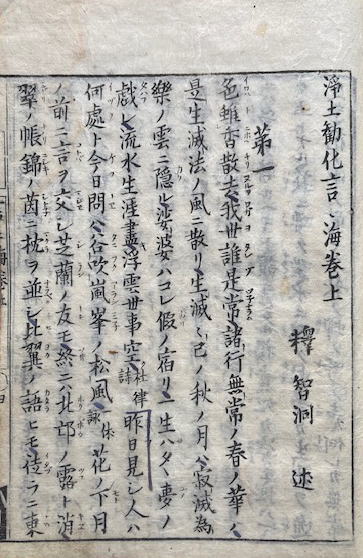 淨土勸化言々海卷上
釋智洞述
第一
色雖香散去我世誰是常諸行無常ノ春ノ華ハ
是生滅法ノ風ニ散リ生滅々已ノ秋ノ月ハ寂滅爲
樂ノ雲ニ隱ル娑婆ハコレ假ノ宿リ一生ハタヽ夢ノ
戲レ流水生涯盡浮雲世事空杜律詩昨日見シ人ハ
何處ト今日問ハ谷吹嵐峯ノ松風詠休花ノ下月
ノ前ニ言ヲ交シ芝蘭ノ友モ終ニハ北邙ノ露ト消
翠ノ帳錦ノ茵ニ枕ヲ並シ比翼ノ語ヒモ徒ラニ東